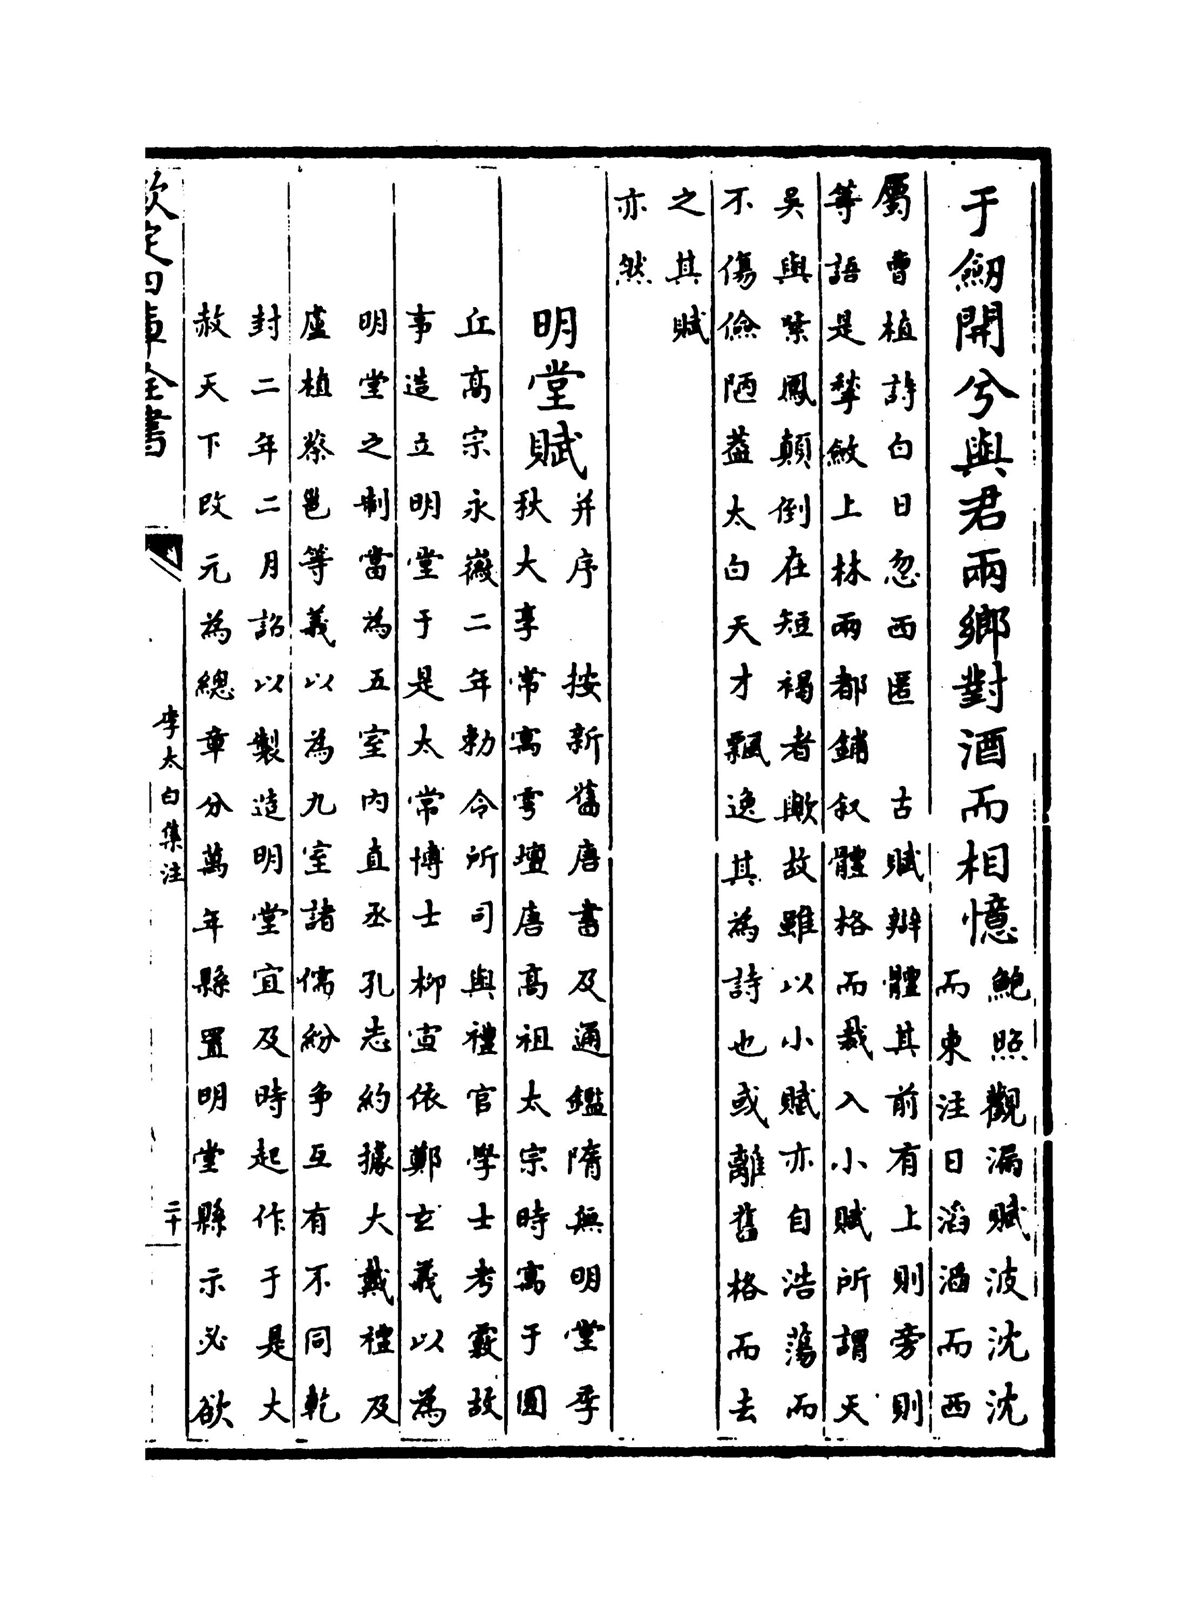 于劒開兮與君兩鄉對酒而相憶鮑照觀漏賦波沈沈
而東注日滔滔而西
屬曹植詩白日忽西匿　古賦辯體其前有上則旁則
等語是摯斂上林兩都鋪叙體格而裁入小賦所謂天
吳與紫鳳顛倒在短褐者歟故雖以小賦亦自浩蕩而
不傷儉陋葢太白天才飄逸其為詩也或離舊格而去
之其賦
亦然
明堂賦并序　按新舊唐書及通鑑隋無明堂季
秋大享常寓雩壇唐高祖太宗時寓于圓
丘高宗永徽二年勅令所司與禮官學士考覈故
事造立明堂于是太常博士柳宣依鄭玄義以為
明堂之制當為五室内直丞孔志約據大戴禮及
盧植蔡邕等義以為九室諸儒紛争互有不同乾
封二年二月詔以製造明堂宜及時起作于是大
赦天下改元為總章分萬年縣置明堂縣示必欲
欽定四庫全書
李太白集注
二十